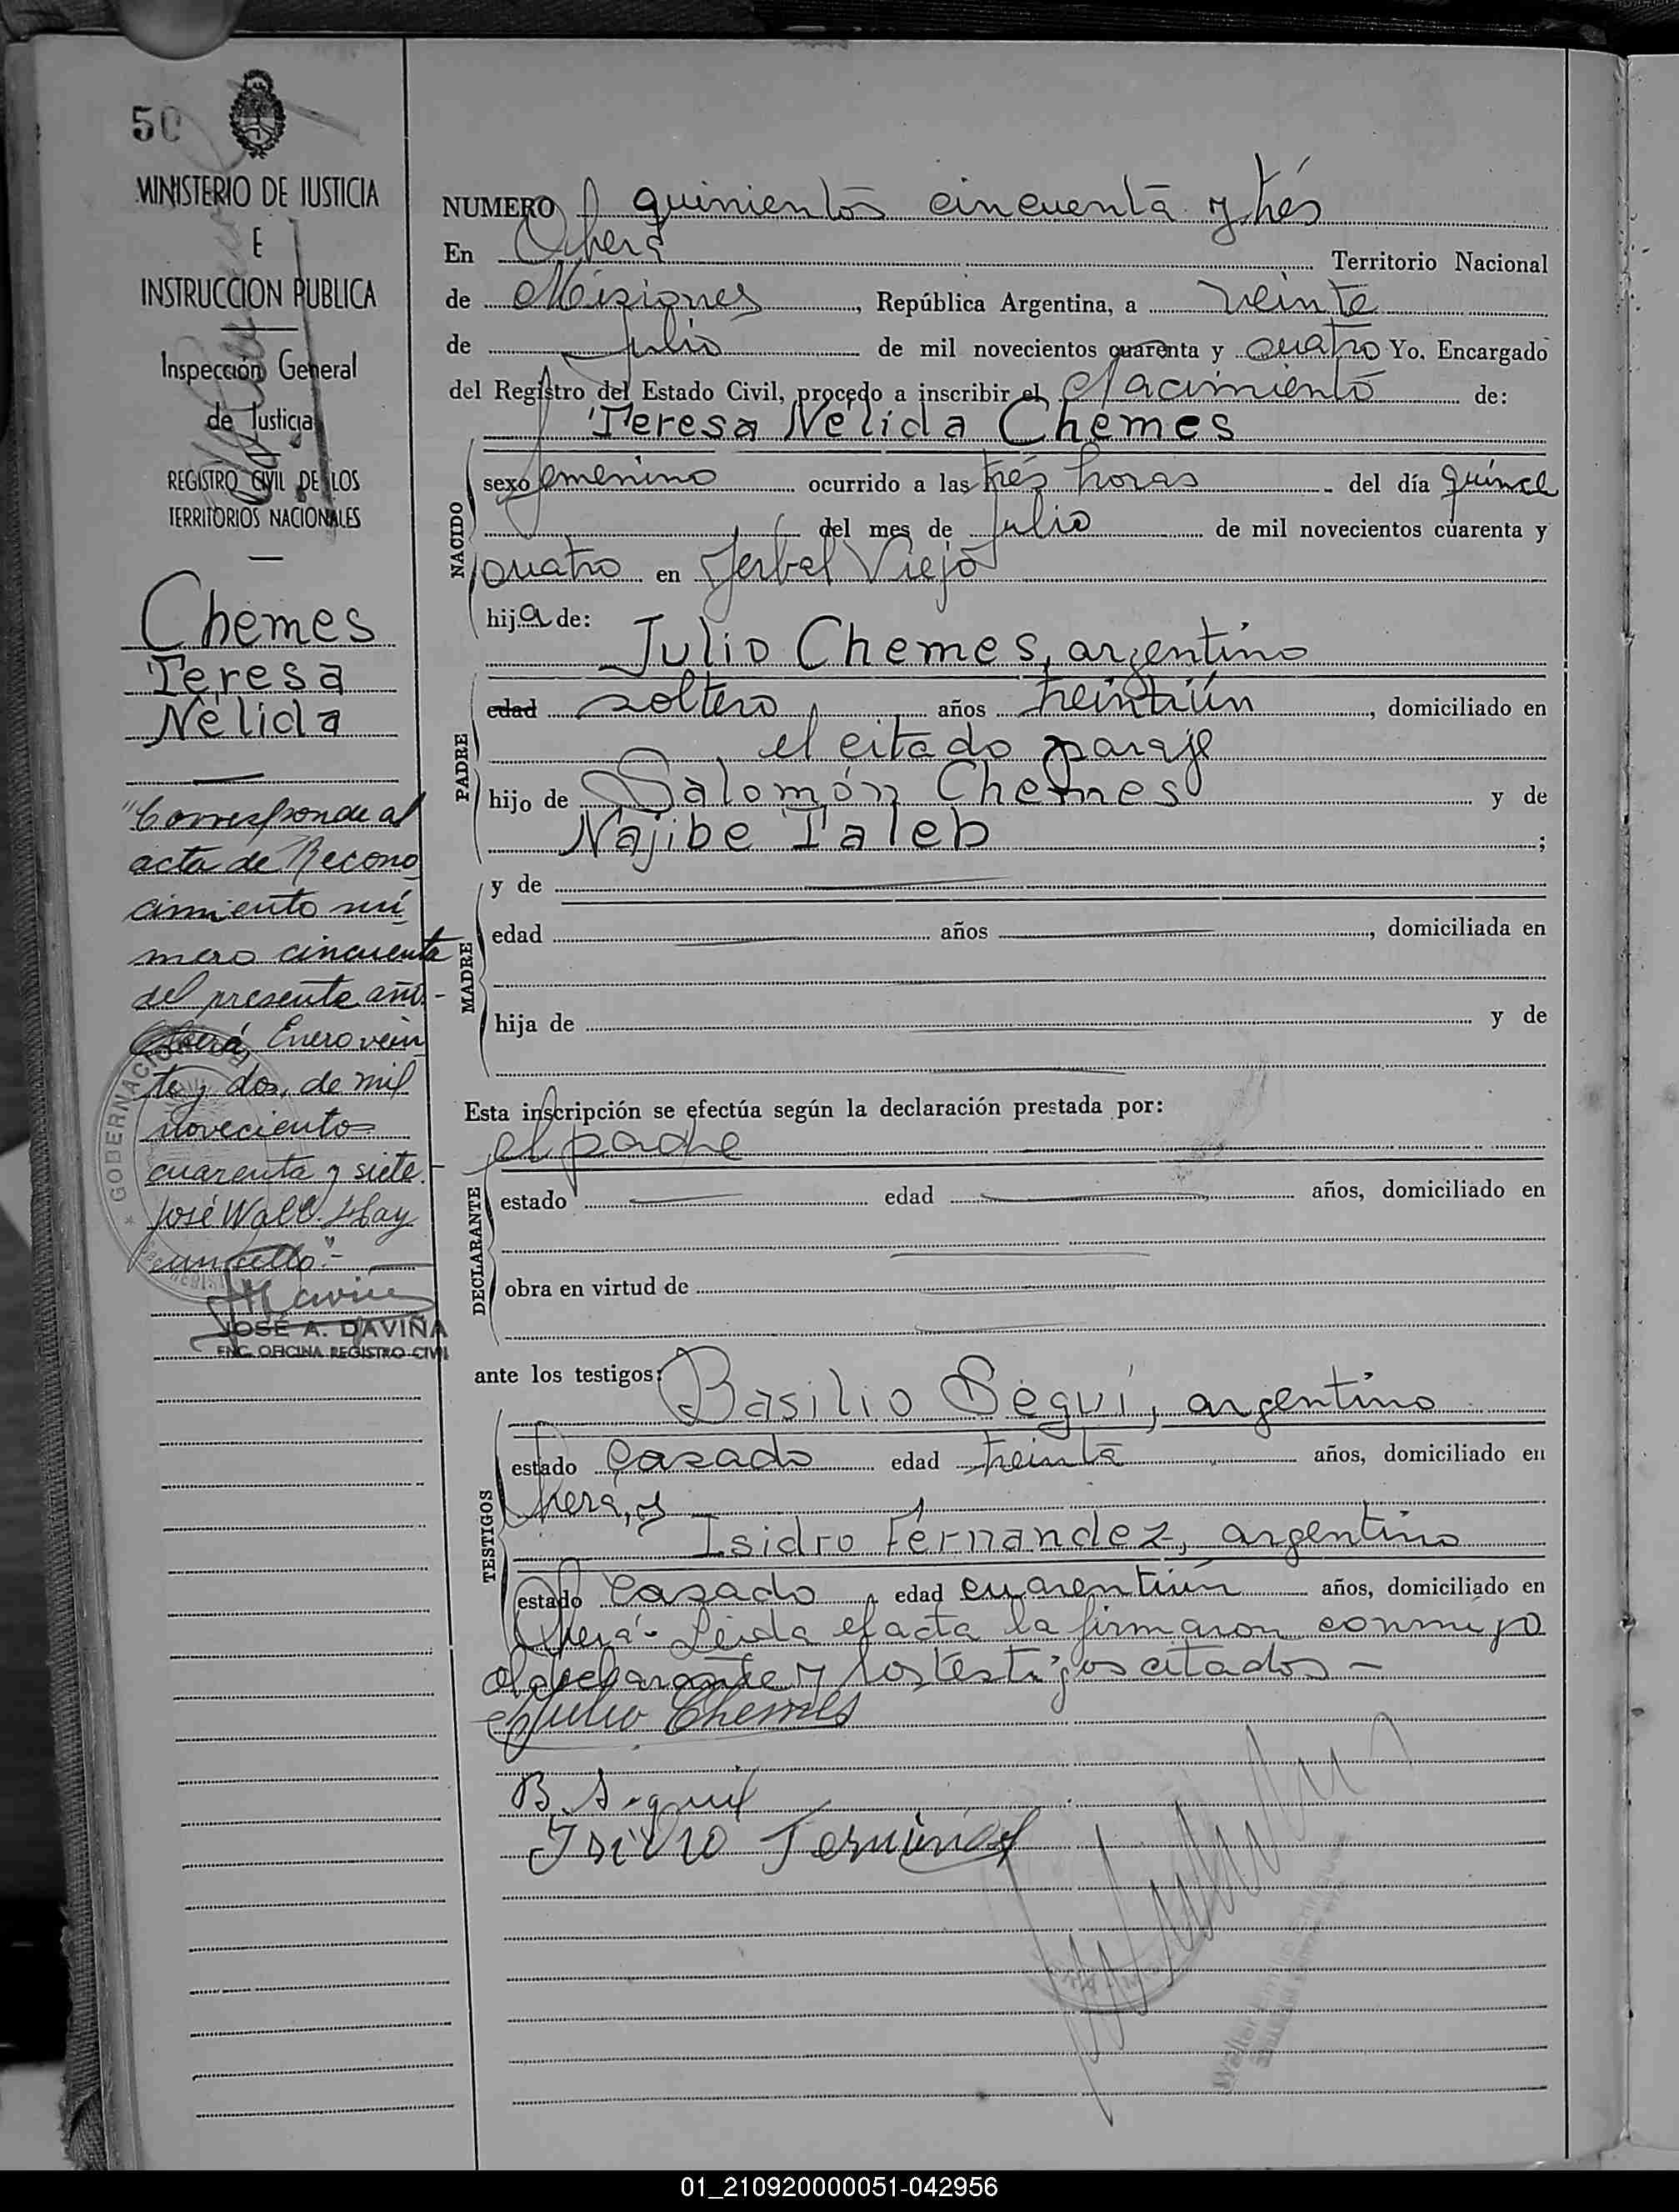 50
MINISTERIO DE JUSTICIA
E
INSTRUCCION PUBLICA
Inspección General
de Justicia
REGISTRO CIVIL DE LOS
TERRITORIOS NACIONALES
Chemes
Teresa
Nélida
"Corresponde al
acta de Recono
cimiento nú
mero cincuenta
del presente año.-
Oberá, Enero vein
te y dos, de mil
novecientos
cuarenta y siete.-
José Walt. Hay
GOBERNACION
JOSÉ A. DAVIÑA
ENC. OFICINA REGISTRO CIVIL
NUMERO quinientos cincuenta y trés
En Oberá Territorio Nacional
de Misiones, República Argentina, a veinte
de julio de mil novecientos cuarenta y cuatro Yo, Encargado
del Registro del Estado Civil, procedo a inscribir el Nacimiento de:
Teresa Nélida Chemes
NACIDO
sexo femenino ocurrido a las trés horas del día quince
del mes de julio de mil novecientos cuarenta y
cuatro en Yerbal Viejo
hija de:
Julio Chemes, argentino
PADRE
edad soltero años treintiún, domiciliado en
el citado paraje
hijo de Salomón Chemes y de
Najibe Taleb ;
MADRE
y de
edad años , domiciliada en
hija de y de
Esta inscripción se efectúa según la declaración prestada por:
el padre
DECLARANTE
estado edad años, domiciliado en
obra en virtud de
ante los testigos: Basilio Seguí, argentino
TESTIGOS
estado casado edad treinta años, domiciliado en
Oberá, y
Isidro Fernandez, argentino
estado casado edad cuarentiún años, domiciliado en
Oberá.- Leida el acta la firmaron conmigo
el declarante y los testigos citados -
Julio Chemes
B. Seguí
Isidro Fernández
01_210920000051-042956